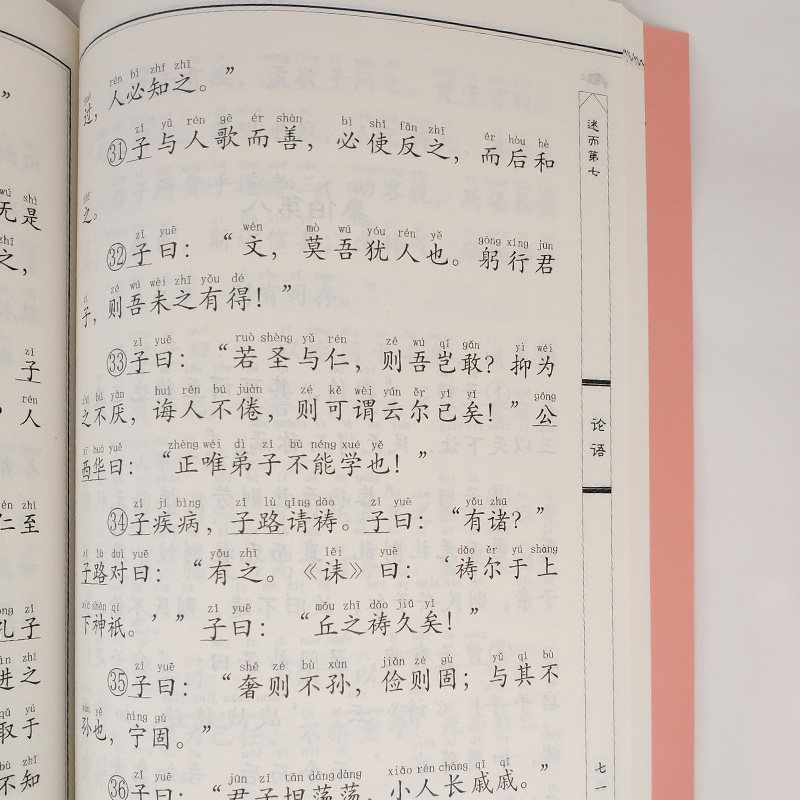 ”
wú shì
无是
zhī
之，
zǐ
子
rén
” 人
zhì
仁至
zǐ
孔子
zhī
进之
qǔ yú
取于
bù zhī
不知
rén bì zhī zhī
过，人必知之。”
zǐ yǔ rén gē ér shàn bì shǐ fǎn zhī ér hòu hè
㉛子与人歌而善，必使反之，而后和
zhī
之。
zǐ yuē wén mò wú yóu rén yě gōng xíng jūn
㉜子曰：“文，莫吾犹人也。躬行君
zǐ zé wú wèi zhī yǒu dé
子，则吾未之有得！”
zǐ yuē ruò shèng yǔ rén zé wú qǐ gǎn yì wéi
㉝子曰：“若圣与仁，则吾岂敢？抑为
zhī bú yàn huì rén bú juàn zé kě wèi yún ěr yǐ yǐ gōng
之不厌，诲人不倦，则可谓云尔已矣！”公
xī huá yuē zhèng wéi dì zǐ bù néng xué yě
西华曰：“正唯弟子不能学也！”
zǐ jí bìng zǐ lù qǐng dǎo zǐ yuē yǒu zhū
㉞子疾病，子路请祷。子曰：“有诸？”
zǐ lù duì yuē yǒu zhī lěi yuē dǎo ěr yú shàng
子路对曰：“有之。《诔》曰：‘祷尔于上
xià shén qí zǐ yuē mǒu zhī dǎo jiǔ yǐ
下神祇。’”子曰：“丘之祷久矣！”
zǐ yuē shē zé bù xùn jiǎn zé gù yǔ qí bù
㉟子曰：“奢则不孙，俭则固；与其不
nìng gù
孙也，宁固。”
zǐ yuē jūn zǐ tǎn dàng dàng xiǎo rén cháng qī qī
㊱子曰：“君子坦荡荡，小人长戚戚。”
述而第七
论语
七一